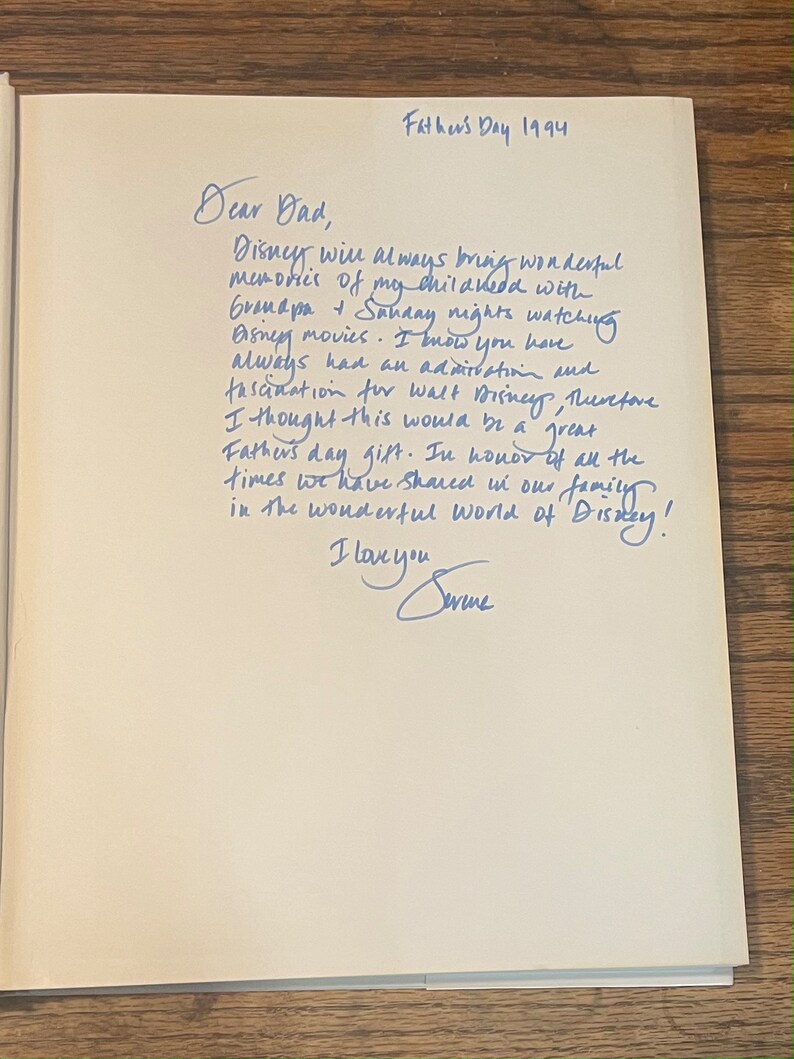 Father's Day 1994
Dear Dad,
Disney will always bring wonderful
memories of my childhood with
Grandpa + Sunday nights watching
Disney movies. I know you have
always had an admiration and
fascination for Walt Disney, therefore
I thought this would be a great
Father's day gift. In honor of all the
times we have shared in our family
in the wonderful world of Disney!
I love you
Serene